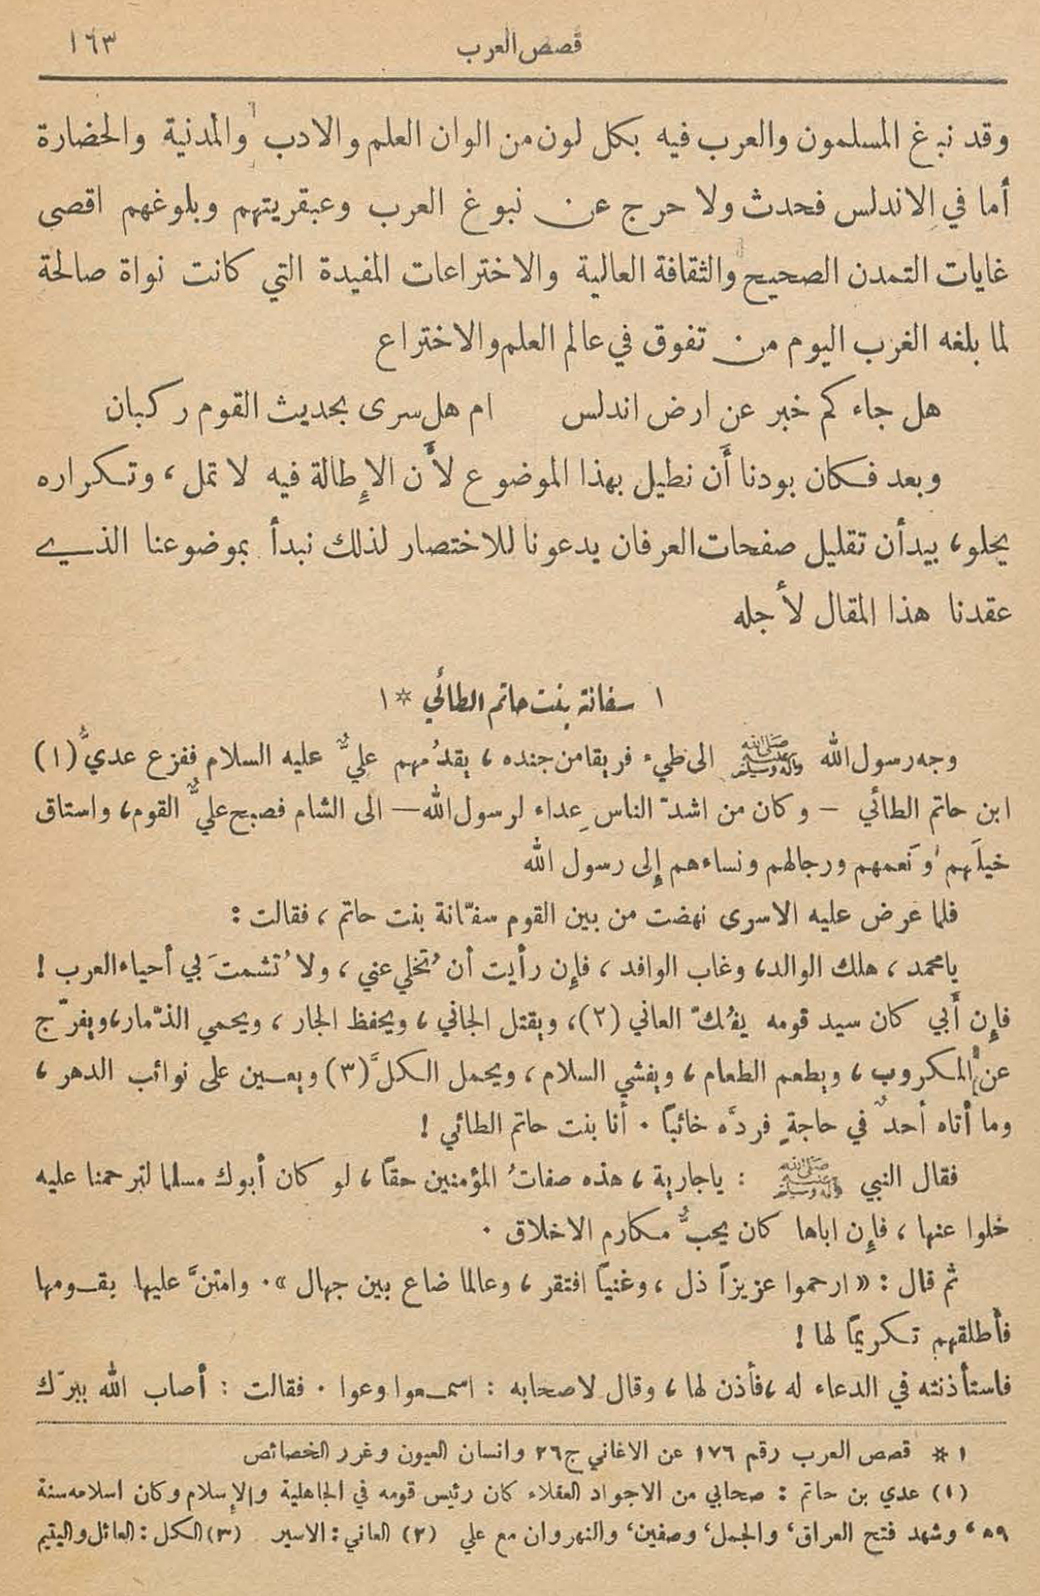 قصص العرب ١٦٣
وقد نبغ المسلمون والعرب فيه بكل لون من الوان العلم والادب والمدنية والحضارة
أما في الاندلس فحدث ولا حرج عن نبوغ العرب وعبقريتهم وبلوغهم اقصى
غايات التمدن الصحيح والثقافة العالية والاختراعات المفيدة التي كانت نواة صالحة
لما بلغه الغرب اليوم من تفوق في عالم العلم والاختراع
هل جاءكم خبر عن ارض اندلس ام هل سرى بحديث القوم ركبان
وبعد فكان بودنا أَن نطيل بهذا الموضوع لأَن الإِطالة فيه لا تمل ، وتكراره
يحلو ، بيد أن تقليل صفحات العرفان يدعونا للاختصار لذلك نبدأ بموضوعنا الذي
عقدنا هذا المقال لأجله
١ سفانة بنت حاتم الطائي * ١
وجه رسول الله صلى الله عليه وآله وسلم الى طيء فريقا من جنده ، يقدُمهم عليٌّ عليه السلام ففزع عديُّ (١)
ابن حاتم الطائي — وكان من اشدّ الناس عِداء لرسول الله — الى الشام فصبح عليٌّ القوم ، واستاق
خيلَهم وَنَعمهم ورجالهم ونساءهم إِلى رسول الله
فلما عرض عليه الاسرى نهضت من بين القوم سفّانة بنت حاتم ، فقالت :
يا محمد ، هلك الوالد ، وغاب الوافد ، فإِن رأيت أن تُخلي عني ، ولا تُشمتَ بي أحياء العرب !
فإِن أَبي كان سيد قومه يفُكّ العاني (٢) ، ويقتل الجاني ، ويحفظ الجار ، ويحمي الذّمار ، ويفرّج
عن المكروب ، ويطعم الطعام ، ويفشي السلام ، ويحمل الكلَّ (٣) ويعين على نوائب الدهر ،
وما أتاه أحدٌ في حاجةٍ فردَّه خائباً . أنا بنت حاتم الطائي !
فقال النبي صلى الله عليه وآله وسلم : يا جارية ، هذه صفاتُ المؤمنين حقاً ، لو كان أبوك مسلما لترحمنا عليه
خلوا عنها ، فإِن اباها كان يحبُّ مكارم الاخلاق .
ثم قال : « ارحموا عزيزاً ذل ، وغنياً افتقر ، وعالما ضاع بين جهال » . وامتنَّ عليها بقومها
فأطلقهم تكريماً لها !
فاستأذنته في الدعاء له ، فأذن لها ، وقال لاصحابه : اسمعوا وعوا . فقالت : أصاب الله ببرّك
١ * قصص العرب رقم ١٧٦ عن الاغاني ج٢٦ وانسان العيون وغرر الخصائص
(١) عدي بن حاتم : صحابي من الاجواد العقلاء كان رئيس قومه في الجاهلية والإسلام وكان اسلامه سنة
٩هـ ، وشهد فتح العراق ، والجمل ، وصفين ، والنهروان مع علي (٢) العاني : الاسير (٣) الكل : العائل واليتيم